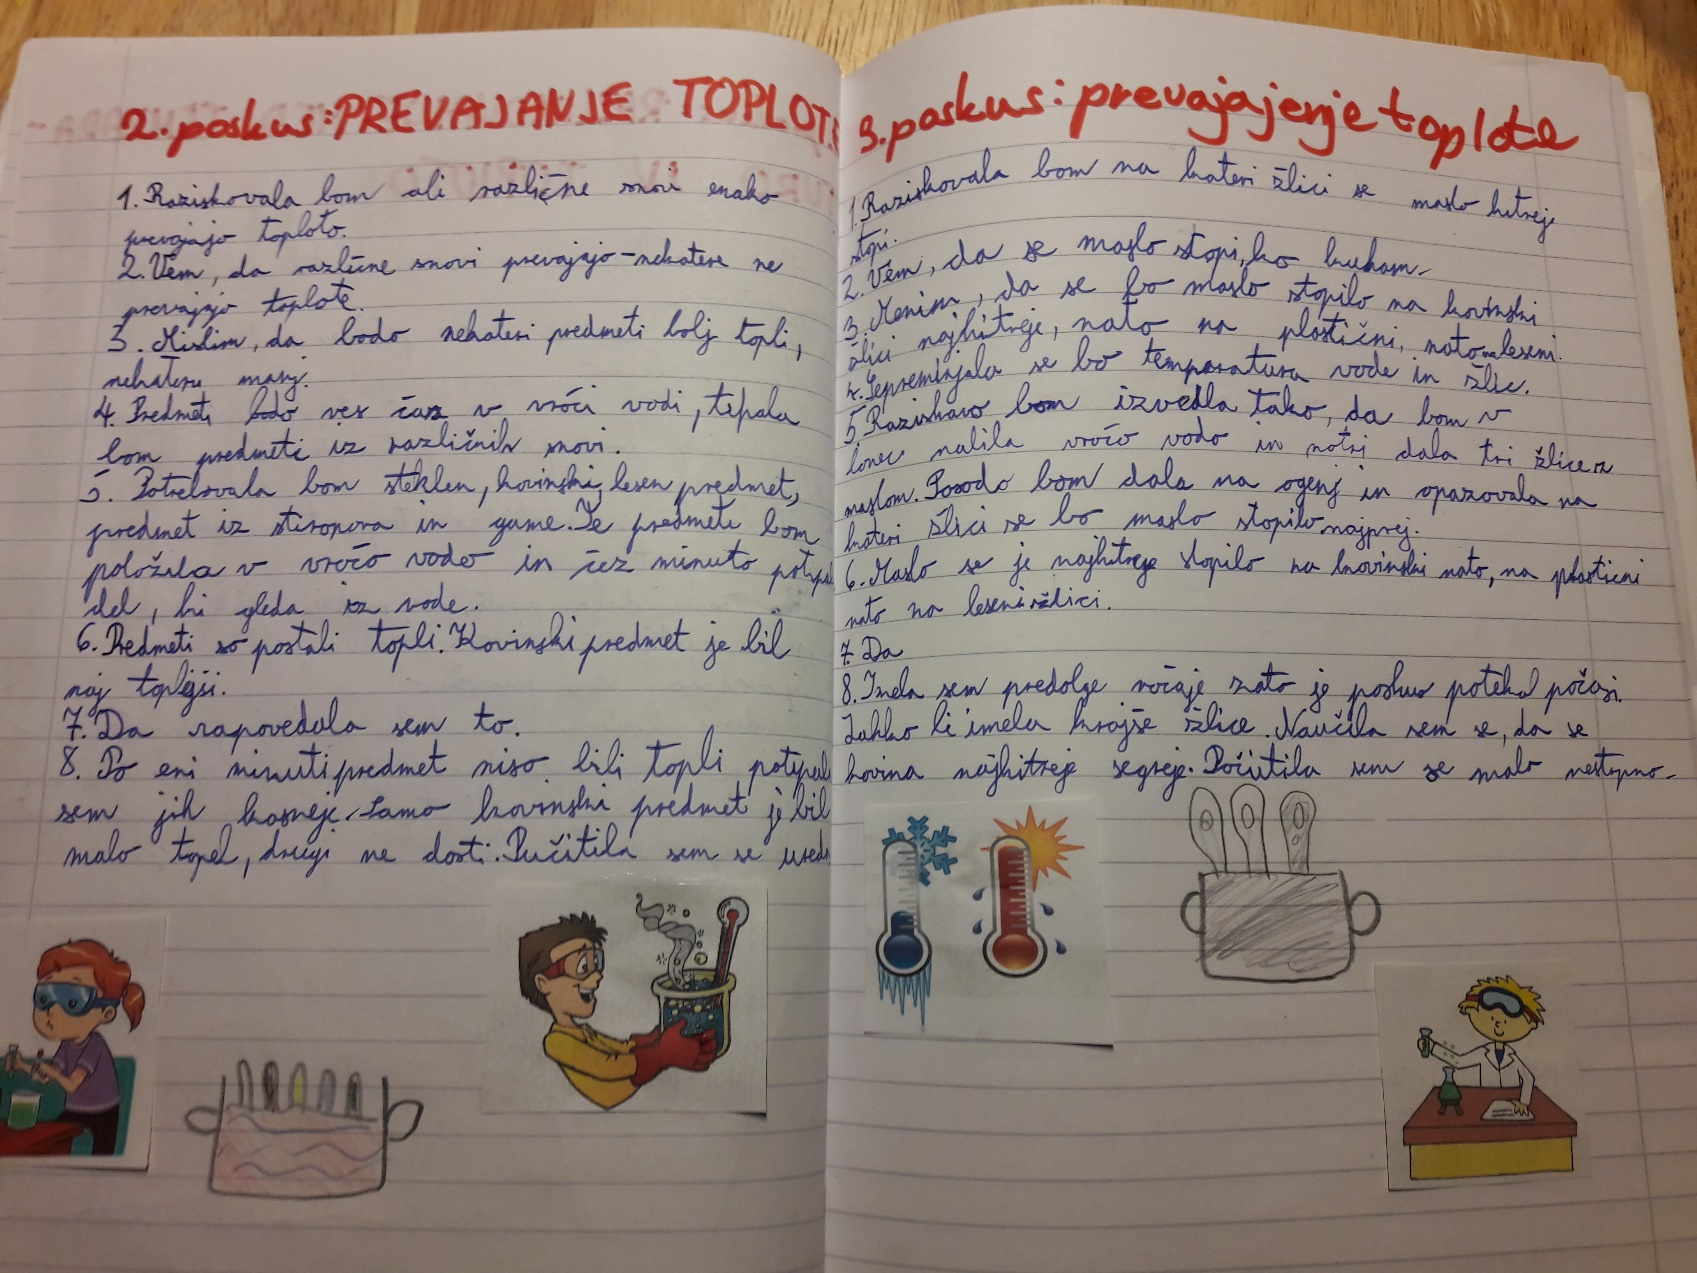 2. poskus: PREVAJANJE TOPLOTE
1. Raziskovala bom ali različne snovi enako
prevajajo toploto.
2. Vem, da različne snovi prevajajo - nekatere ne
prevajajo toplote.
3. Mislim, da bodo nekateri predmeti bolj topli,
nekateri manj.
4. Predmeti bodo ves čas v vroči vodi, tipala
bom predmeti iz različnih snovi.
5. Potrebovala bom steklen, kovinski, lesen predmet,
predmet iz stiropora in gume. Te predmete bom
položila v vročo vodo in čez minuto potipal
del, ki gleda iz vode.
6. Predmeti so postali topli. Kovinski predmet je bil
naj toplejši.
7. Da napovedala sem to.
8. Po eni minuti predmet niso bili topli potipala
sem jih kasneje. Samo kovinski predmet je bil
malo topel, drugi ne dosti. Počutila sem se
3. poskus: prevajajenje toplote
1. Raziskovala bom na kateri žlici se maslo hitreje
stopi.
2. Vem, da se maslo stopi, ko kuham.
3. Menim, da se bo maslo stopilo na kovinski
žlici najhitreje, nato na plastični, nato na leseni.
4. Spreminjala se bo temperatura vode in žlic.
5. Raziskavo bom izvedla tako, da bom v
lonec nalila vročo vodo in notri dala tri žlice z
maslom. Posodo bom dala na ogenj in opazovala na
kateri žlici se bo maslo stopilo najprej.
6. Maslo se je najhitreje stopilo na kovinski nato, na plastični
nato na leseni žlici.
7. Da
8. Imela sem predolge ročaje zato je poskus potekal počasi.
Lahko bi imela krajše žlice. Naučila sem se, da se
kovina najhitreje segreje. Počutila sem se malo nestrpno.